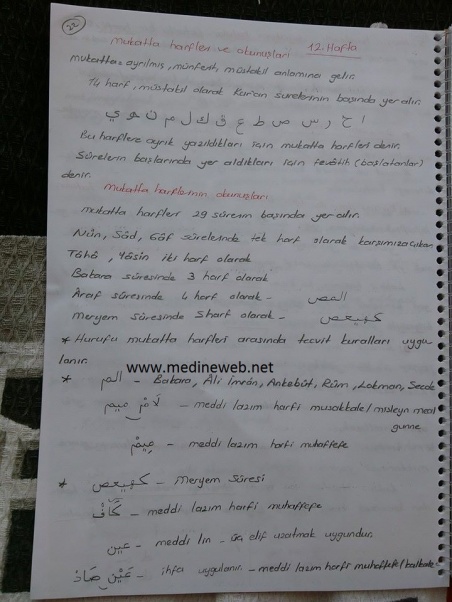 22
Mukatta harfleri ve okunuşları 12. Hafta
Mukatta: ayrılmış, münferit, müstakil anlamına gelir.
14 harf, müstakil olarak Kur'an surelerinin başında yer alır.
ا ح ر س ص ط ع ق ك ل م ن ه ي
Bu harflere ayrık yazıldıkları için mukatta harfleri denir.
Sürelerin başlarında yer aldıkları için fevâtih (başlatanlar)
denir.
Mukatta harflerinin okunuşları
Mukatta harfleri 29 sürenin başında yer alır.
Nûn, Sâd, Gâf sûrelerinde tek harf olarak karşımıza çıkar.
Tâhâ, Yâsin iki harf olarak
Bakara süresinde 3 harf olarak
Âraf süresinde 4 harf olarak - المص
Meryem Süresinde 5harf olarak - كهيعص
* Hurufu mukatta harfleri arasında tecvit kuralları uygu
lanır.
www.medineweb.net
* الم - Bakara, Âli İmrân, Ankebût, Rûm, Lokman, Secde
لَامْ مِيم - meddi lazım harfi musakkale / misleyn meal
gunne
مِيمْ - meddi lazım harfi muhaffefe
* كهيعص - Meryem Sûresi
كَافْ - meddi lazım harfi muhaffefe
عين - meddi lin - üç elif uzatmak uygundur.
عَيْنْ صَادْ - ihfa uygulanır. - meddi lazım harfi muhaffefe/kalkale